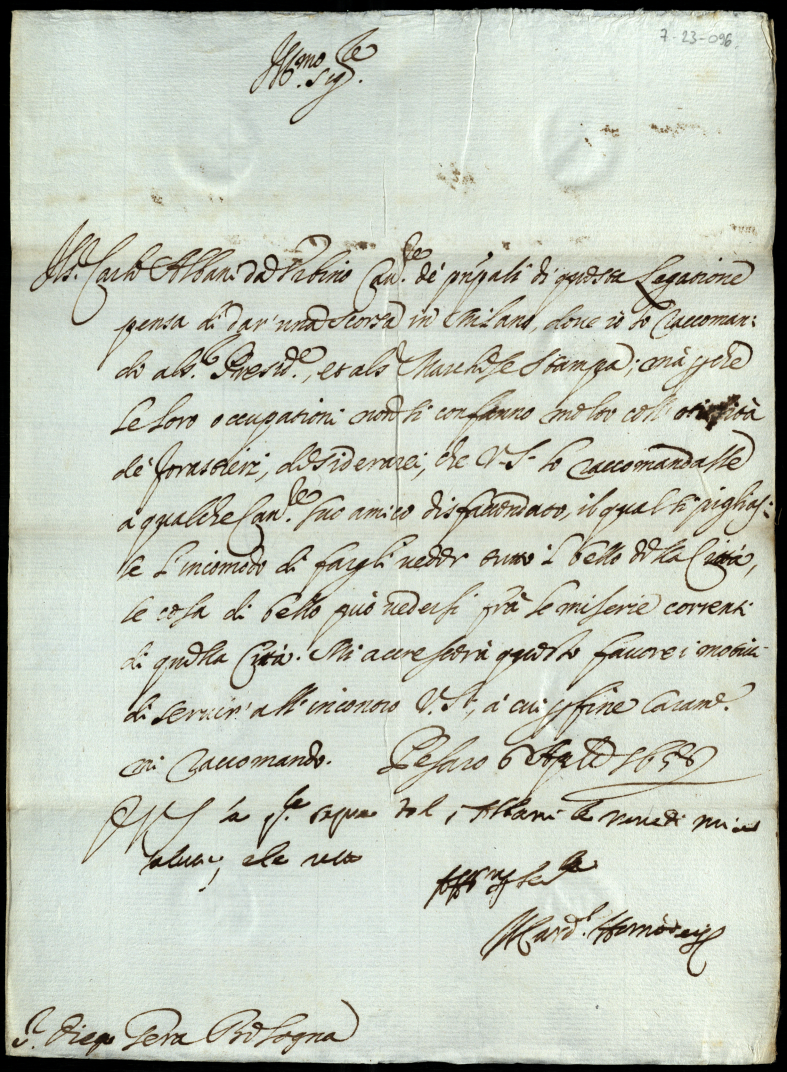 7-23-096.
Ill.mo Sig.re
Il S.r Carlo Albani da Urbino Cau.re de' prīpali di questa Legatione
pensa di dar' una scorsa in Milano, doue io lo raccoman:
do al S.r Presid.te, et al S.r Marchese Stampa; mà perche
le loro occupationi non si confanno molto coll'
de' forastieri, desiderarei, che V.S. lo raccomandasse
à qualche Cau.re suo amico disfacendato, il qual si piglias:
se l'incomodo di fargli ueder tutto il bello della Città,
se cosa di bello può uedersi frà le miserie correnti
di quella Città. Mi accrescerà questo fauore i motiui
di seruir' all'incontro V.S., à cui per fine caram.te
mi raccomando. Pesaro 6 1658
Albani le
Aff.mo per ser.la
Il Card.l Homodei
S.r Diego Pera Bologna